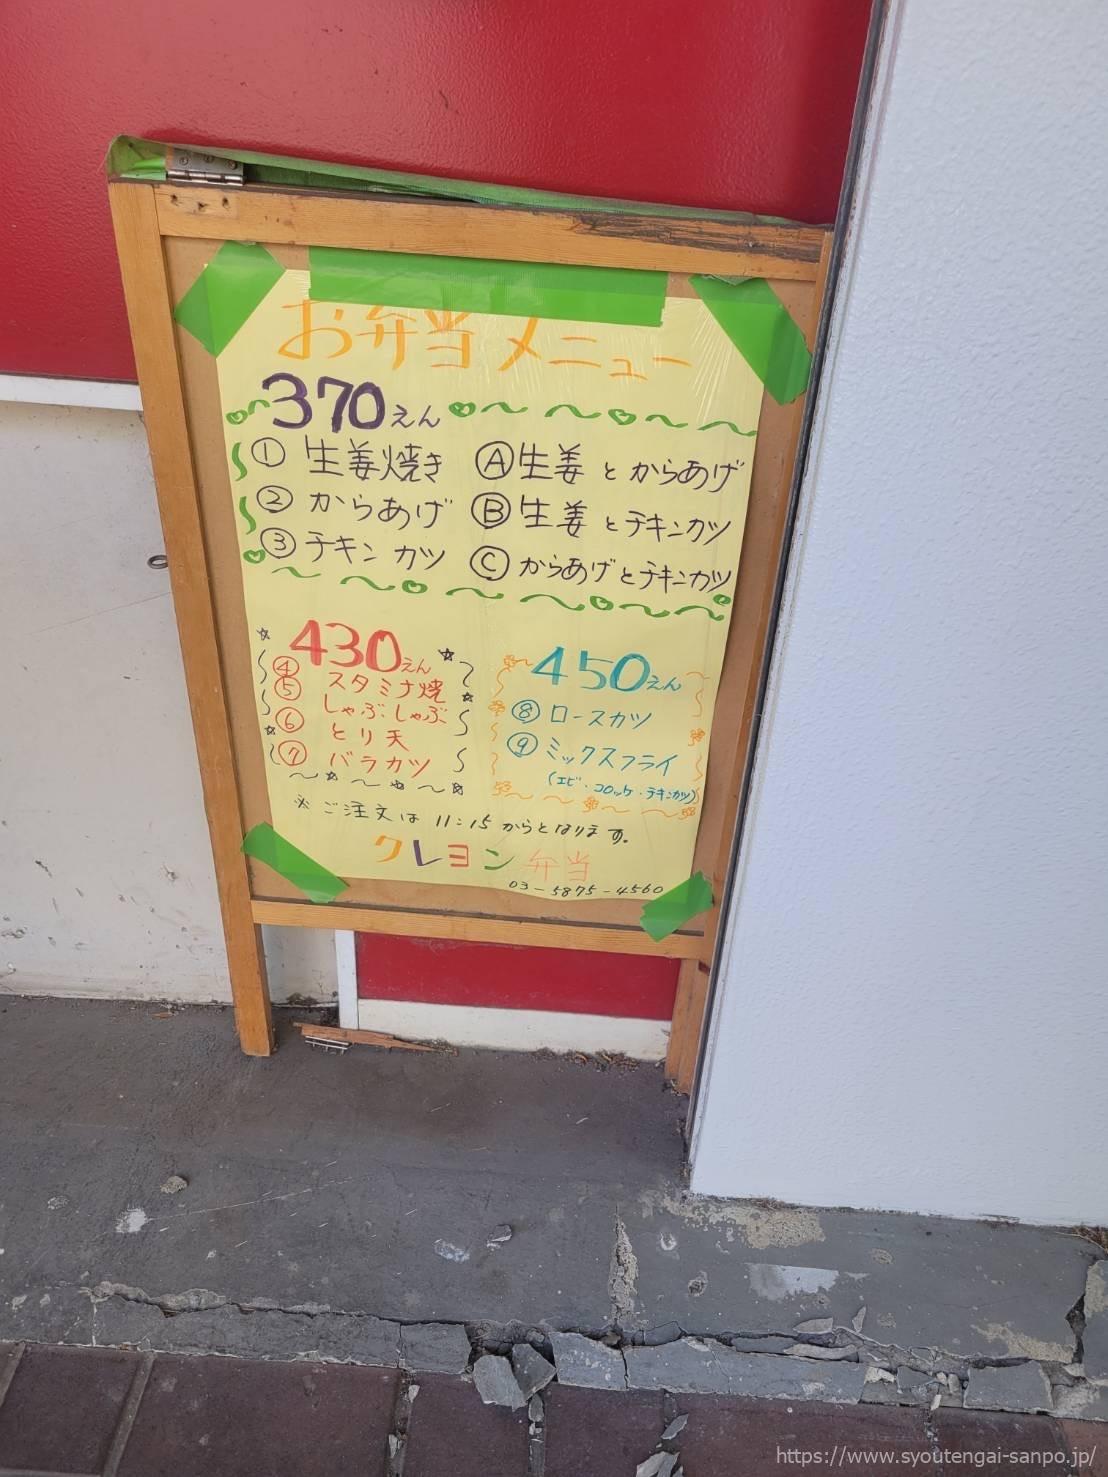 お弁当メニュー
370えん
① 生姜焼き
② からあげ
③ チキンカツ
Ⓐ 生姜とからあげ
Ⓑ 生姜とチキンカツ
Ⓒ からあげとチキンカツ
430えん
④ スタミナ焼
⑤ しゃぶしゃぶ
⑥ とり天
⑦ バラカツ
450えん
⑧ ロースカツ
⑨ ミックスフライ
(エビ・コロッケ・チキンカツ)
※ご注文は 11:15からとなります。
クレヨン弁当
03-5875-4560
https://www.syoutengai-sanpo.jp/